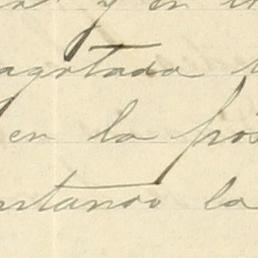 y en
agotada
en la pos
ntando la